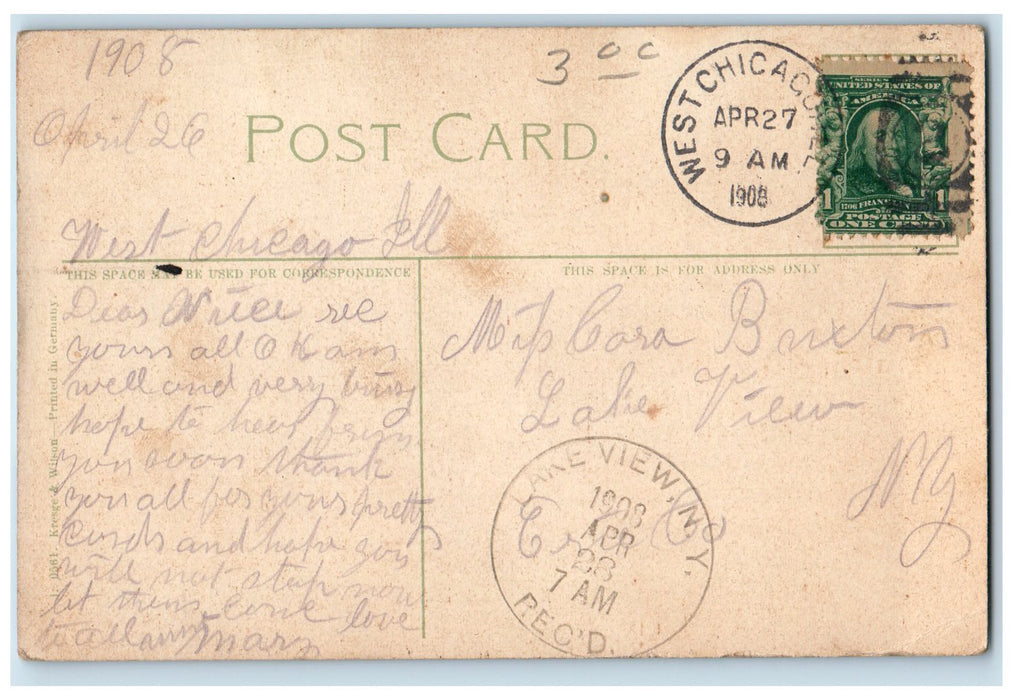 1908
3 00
April 26
POST CARD.
WEST CHICAGO, ILL.
APR 27
9 AM
1908
SERIES 1902
UNITED STATES OF
AMERICA
1 1706 FRANKLIN 1790 1
POSTAGE
ONE CENT
West Chicago Ill
THIS SPACE MAY BE USED FOR CORRESPONDENCE
THIS SPACE IS FOR ADDRESS ONLY
Dear Niece rec
yours all O K am
well and very busy
hope to hear from
you soon thank
you all for yours pretty
Cards and hope you
will not stop now
let them come love
to all aunt Mary
Miss Cora Buxton
Lake View
N Y
Erie Co
LAKE VIEW, N.Y.
1908
APR
28
7 AM
REC'D.
Kresge & Wilson — Printed in Germany